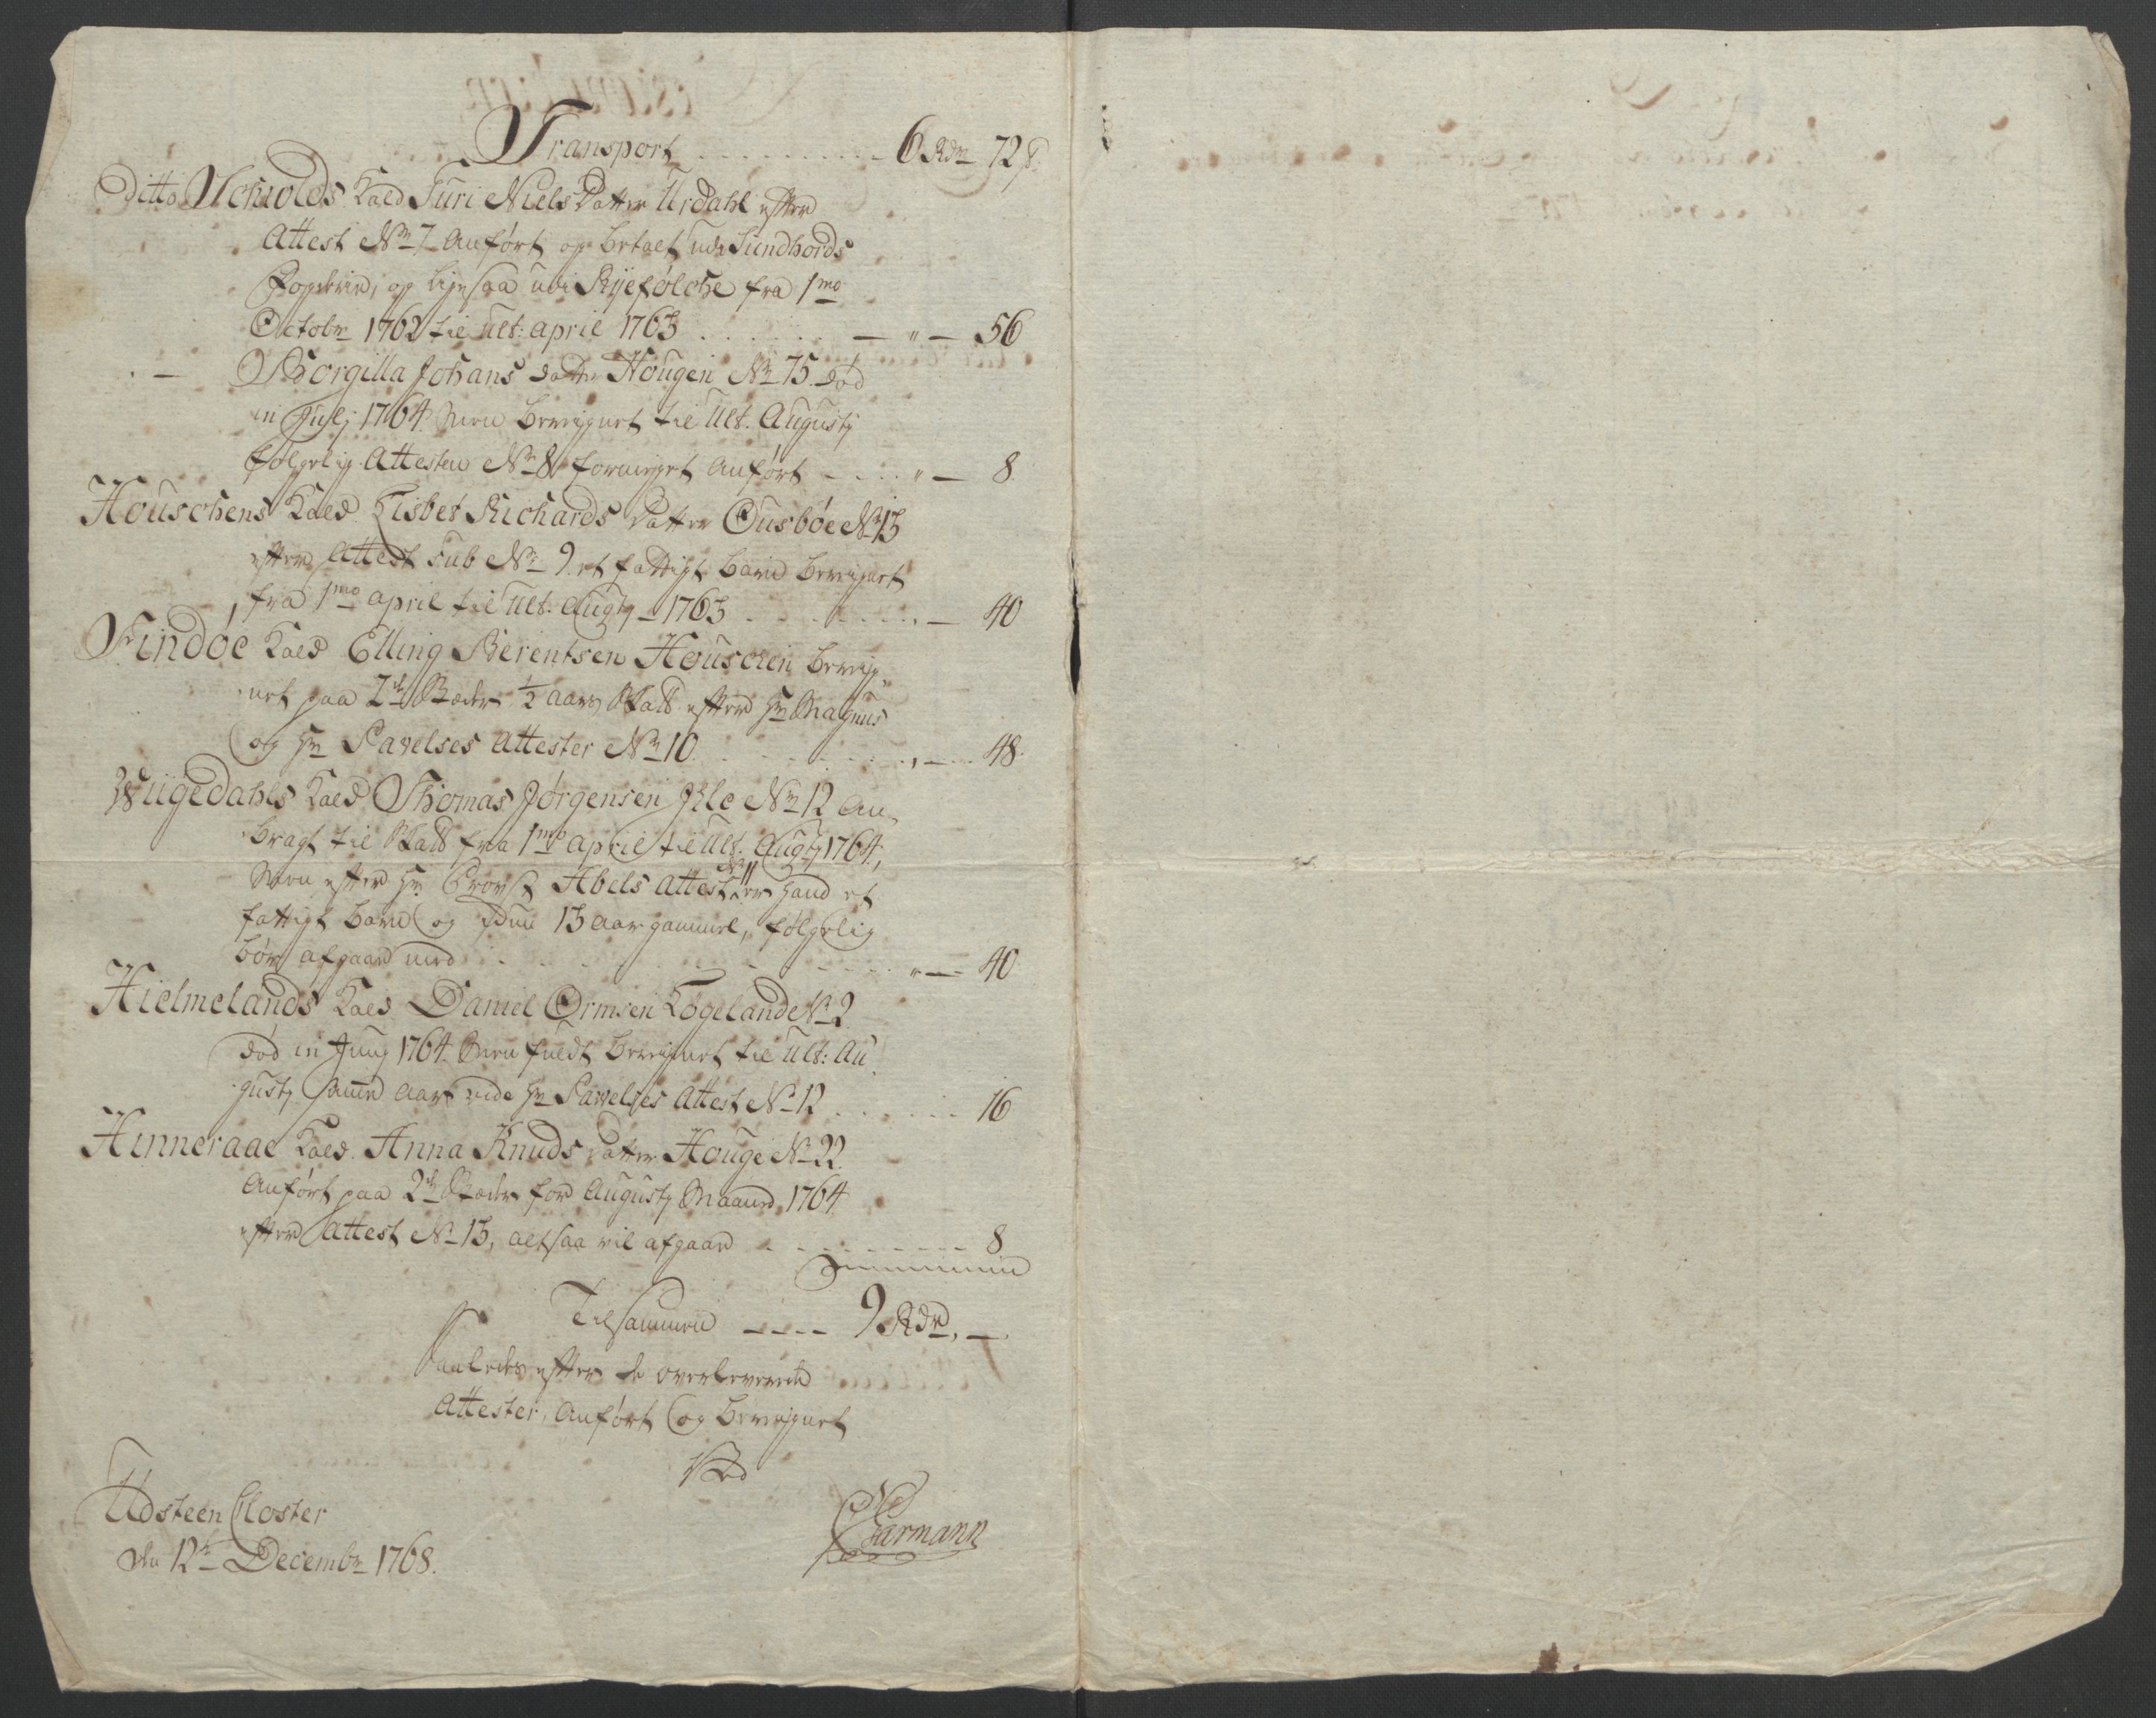 Transport . . . . . . . . . . 6 Rdr 72 s.
Ditto Schiolds Kald Suri Niels Datter Urdahl efter
Attest No 7 Anført og betalt udi Sundhords
Fogderie, og ligesaa udi Ryefølche fra 1mo
Octobr 1762 til ult: april 1763 . . . . . . — " — 56
— Borgilla Johans datter Hougen No 75. død
in Julj 1764 Men beregnet til Ult. Augustj
følgelig Attesten No 8 formeget Anført - . . . " — 8.
Houschens Kald Lisbet Richards Datter Ousbøe No 13
efter Attest sub No 9. et fattigt barn beregnet
fra 1mo april til ult. Augtj 1763 . . . . . . . . , — 40
Findöe Kald Elling Berentsen Houschen bereg-
net paa 2de Stæder ½ aars Skatt efter Hr Magnus
og Hr Pavelses Attester No 10. . . . . . . . , — . . 48.
Wiigedahls Kald Thomas Jørgensen No 12 An-
bragt til Skatt fra 1mo april til ult. Augtj 1764,
Men efter Hr Provst Abels Attest No 11 er hand et
fattigt barn og kun 13 aar gammel, følgelig
bør afgaae med . . . . . . . . . . " — 40
Hielmelands Kald Daniel Ormsen Togeland No 2
død in Junj 1764 Men fuldt beregnet til ult: Au-
gustj samme aar vide Hr Pavelses Attest No 12 . . . . . . . 16
Hinneraae Kald. Anna Knuds Datter Houge No 22.
Anført paa 2de Stæder for Augustj Maaned 1764
efter Attest No 13, altsaa vil afgaae . . . . . . . . . 8
Tilsammen - - - - 9 Rdr, —.
Saaledes efter de overleverede
Attester, Anført og beregnet
Ved
Udsteen Closter
den 12te Decembr 1768.
Garmann